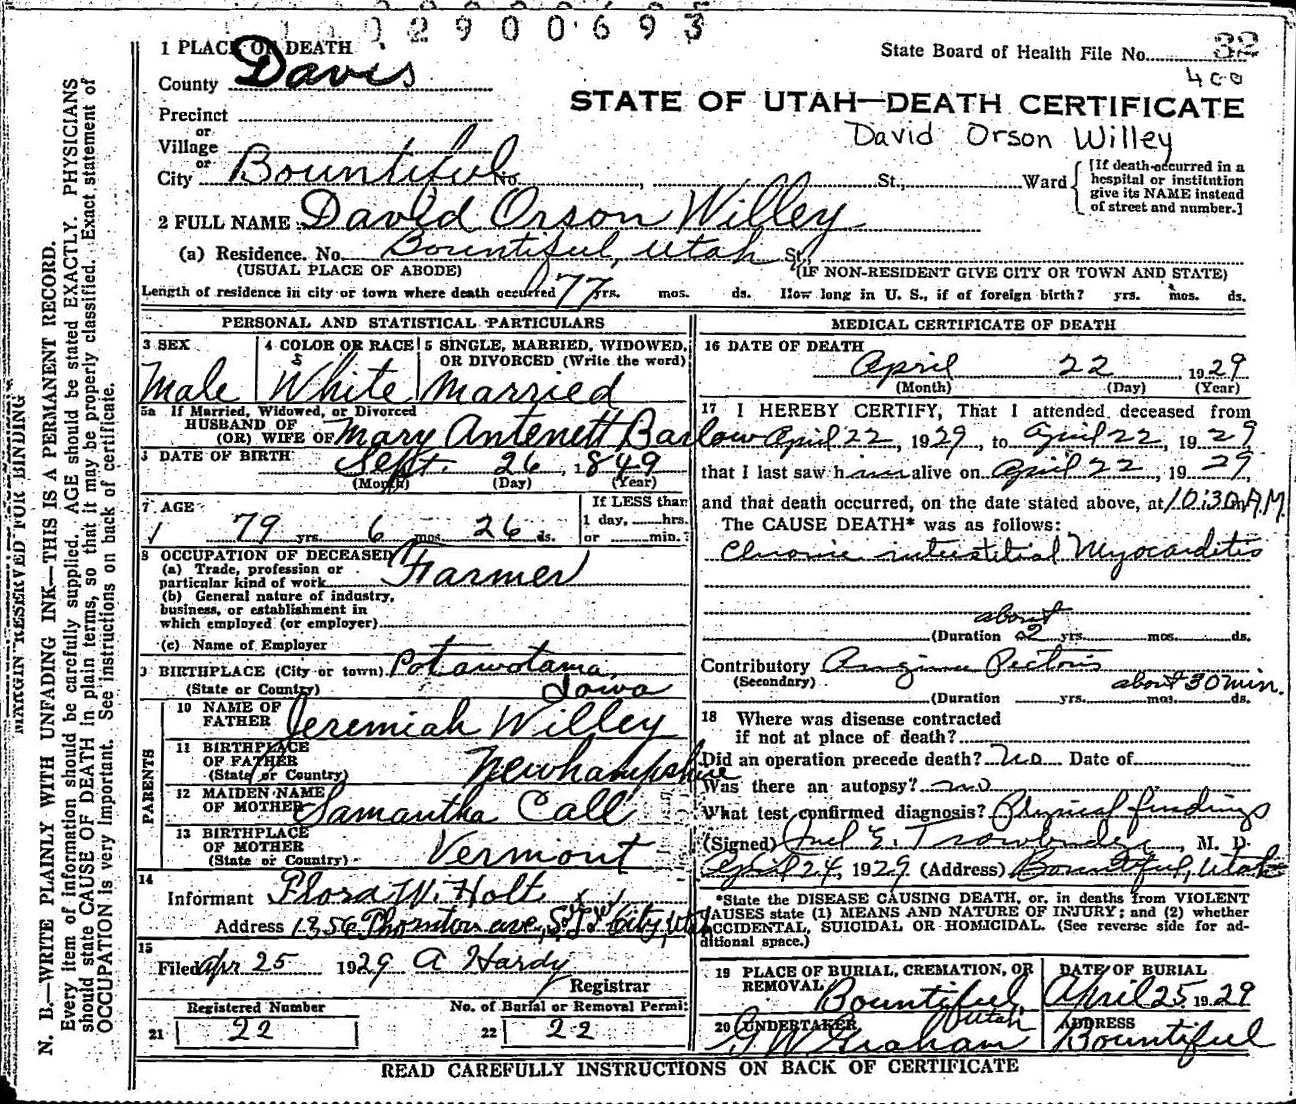 02900693
1 PLACE OF DEATH
County Davis
State Board of Health File No. 32
400
STATE OF UTAH—DEATH CERTIFICATE
David Orson Willey
Precinct
or
Village
or
City Bountiful No. , St., Ward
[If death occurred in a
hospital or institution
give its NAME instead
of street and number.]
2 FULL NAME David Orson Willey
(a) Residence. No. Bountiful, Utah St.,
(USUAL PLACE OF ABODE) (IF NON-RESIDENT GIVE CITY OR TOWN AND STATE)
Length of residence in city or town where death occurred 77 yrs. mos. ds. How long in U. S., if of foreign birth? yrs. mos. ds.
PERSONAL AND STATISTICAL PARTICULARS
3 SEX
Male
4 COLOR OR RACE
White
5 SINGLE, MARRIED, WIDOWED,
OR DIVORCED (Write the word)
Married
5a If Married, Widowed, or Divorced
HUSBAND OF
(OR) WIFE OF Mary Antenett Barlow
DATE OF BIRTH Sept. 26, 1849
(Month) (Day) (Year)
7 AGE
79 yrs. 6 mos. 26 ds.
If LESS than
1 day, hrs.
or min.?
8 OCCUPATION OF DECEASED
(a) Trade, profession or
particular kind of work Farmer
(b) General nature of industry,
business, or establishment in
which employed (or employer)
(c) Name of Employer
9 BIRTHPLACE (City or town) Potawotama,
(State or Country) Iowa
PARENTS
10 NAME OF
FATHER Jeremiah Willey
11 BIRTHPLACE
OF FATHER
(State or Country) Newhampshire
12 MAIDEN NAME
OF MOTHER Samantha Call
13 BIRTHPLACE
OF MOTHER
(State or Country) Vermont
14
Informant Flora W. Holt
Address 1356 Thornton ave., S. L. City, Utah
15
Filed Apr 25 1929 A Hardy
Registrar
Registered Number
21 22
No. of Burial or Removal Permit
22 22
MEDICAL CERTIFICATE OF DEATH
16 DATE OF DEATH
April 22, 1929
(Month) (Day) (Year)
17 I HEREBY CERTIFY, That I attended deceased from
April 22, 1929, to April 22, 1929
that I last saw him alive on April 22, 1929,
and that death occurred, on the date stated above, at 10:30 A.M.
The CAUSE DEATH* was as follows:
Chronic interstitial Myocarditis
about
(Duration 2 yrs. mos. ds.
Contributory Angina Pectoris
(Secondary) about 30 min.
(Duration yrs. mos. ds.
18 Where was disease contracted
if not at place of death?
Did an operation precede death? no Date of
Was there an autopsy? no
What test confirmed diagnosis? Physical findings
(Signed) E. Trowbridge, M. D.
April 24, 1929 (Address) Bountiful, Utah
*State the DISEASE CAUSING DEATH, or, in deaths from VIOLENT
CAUSES state (1) MEANS AND NATURE OF INJURY; and (2) whether
ACCIDENTAL, SUICIDAL OR HOMICIDAL. (See reverse side for ad-
ditional space.)
19 PLACE OF BURIAL, CREMATION, OR
REMOVAL Bountiful, Utah
DATE OF BURIAL
April 25 1929
20 UNDERTAKER
W Graham
ADDRESS
Bountiful
READ CAREFULLY INSTRUCTIONS ON BACK OF CERTIFICATE
MARGIN RESERVED FOR BINDING
N. B.—WRITE PLAINLY WITH UNFADING INK—THIS IS A PERMANENT RECORD.
Every item of information should be carefully supplied. AGE should be stated EXACTLY. PHYSICIANS
should state CAUSE OF DEATH in plain terms, so that it may be properly classified. Exact statement of
OCCUPATION is very important. See instructions on back of certificate.